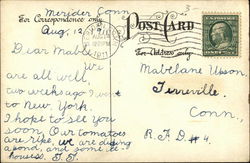 Meriden Conn
For Correspondence only
POST CARD
For Address only
Aug, 12, 1911
Dear Mable
We
are all well,
two weeks ago I went
to New York.
I hope to see you
soon Our tomatoes
are ripe, we are diging
a pond, and some
Mabelane
Terreville.
Conn,
R.F.D #4.